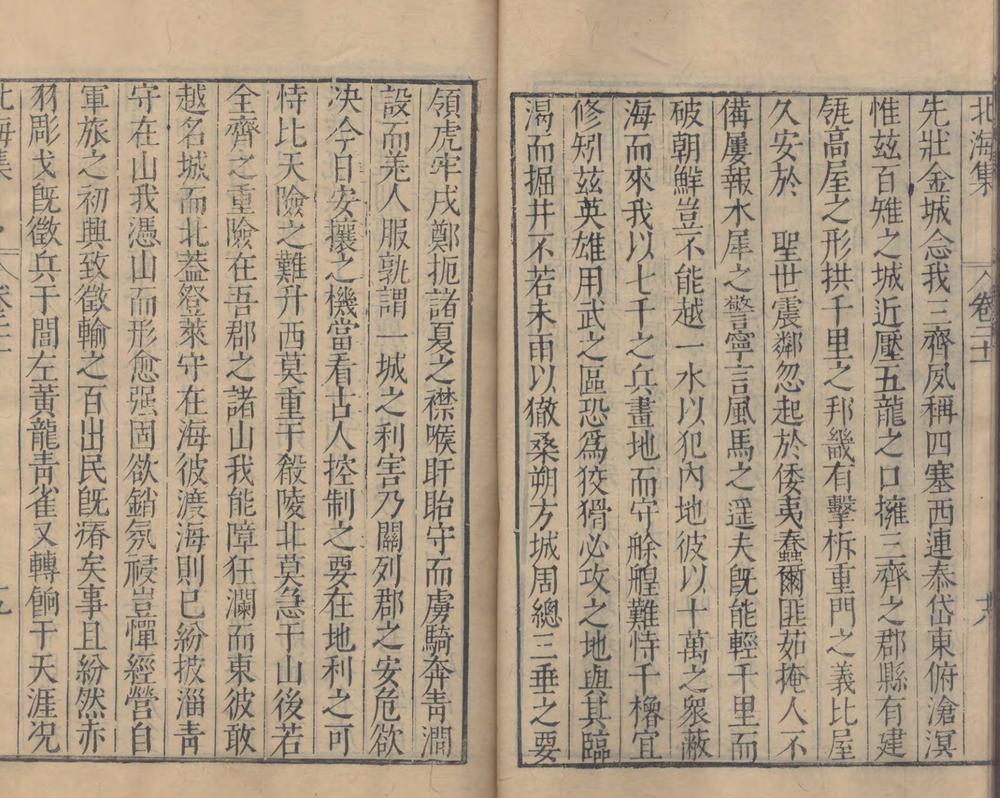 北海集 卷二十 十八
先壯金城念我三齊夙稱四塞西連泰岱東俯滄溟
惟茲百雉之城近壓五龍之口擁三齊之郡縣有建
瓴高屋之形拱千里之邦畿有擊柝重門之義比屋
久安於 聖世震鄰忽起於倭夷蠢爾匪茹掩人不
備屢報水犀之警寧言風馬之遥夫既能輕千里而
破朝鮮豈不能越一水以犯內地彼以十萬之衆蔽
海而來我以七千之兵畫地而守艅艎難恃千櫓宜
修矧茲英雄用武之區恐爲狡猾必攻之地與其臨
渴而掘井不若未雨以徹桑朔方城周總三垂之要
領虎牢戍鄭扼諸夏之襟喉盱眙守而虜騎奔青澗
設而羌人服孰謂一城之利害乃關列郡之安危欲
决今日安攘之機當看古人控制之要在地利之可
恃比天險之難升西莫重于殽陵北莫急于山後若
全齊之重險在吾郡之諸山我能障狂瀾而東彼敢
越名城而北葢登萊守在海彼渡海則已紛披淄青
守在山我憑山而形愈强固欲銷氛祲豈憚經營自
軍旅之初興致徵輸之百出民既瘠矣事且紛然赤
羽彫戈既徵兵于閭左黃龍青雀又轉餉于天涯况
北海集 卷二十 十九